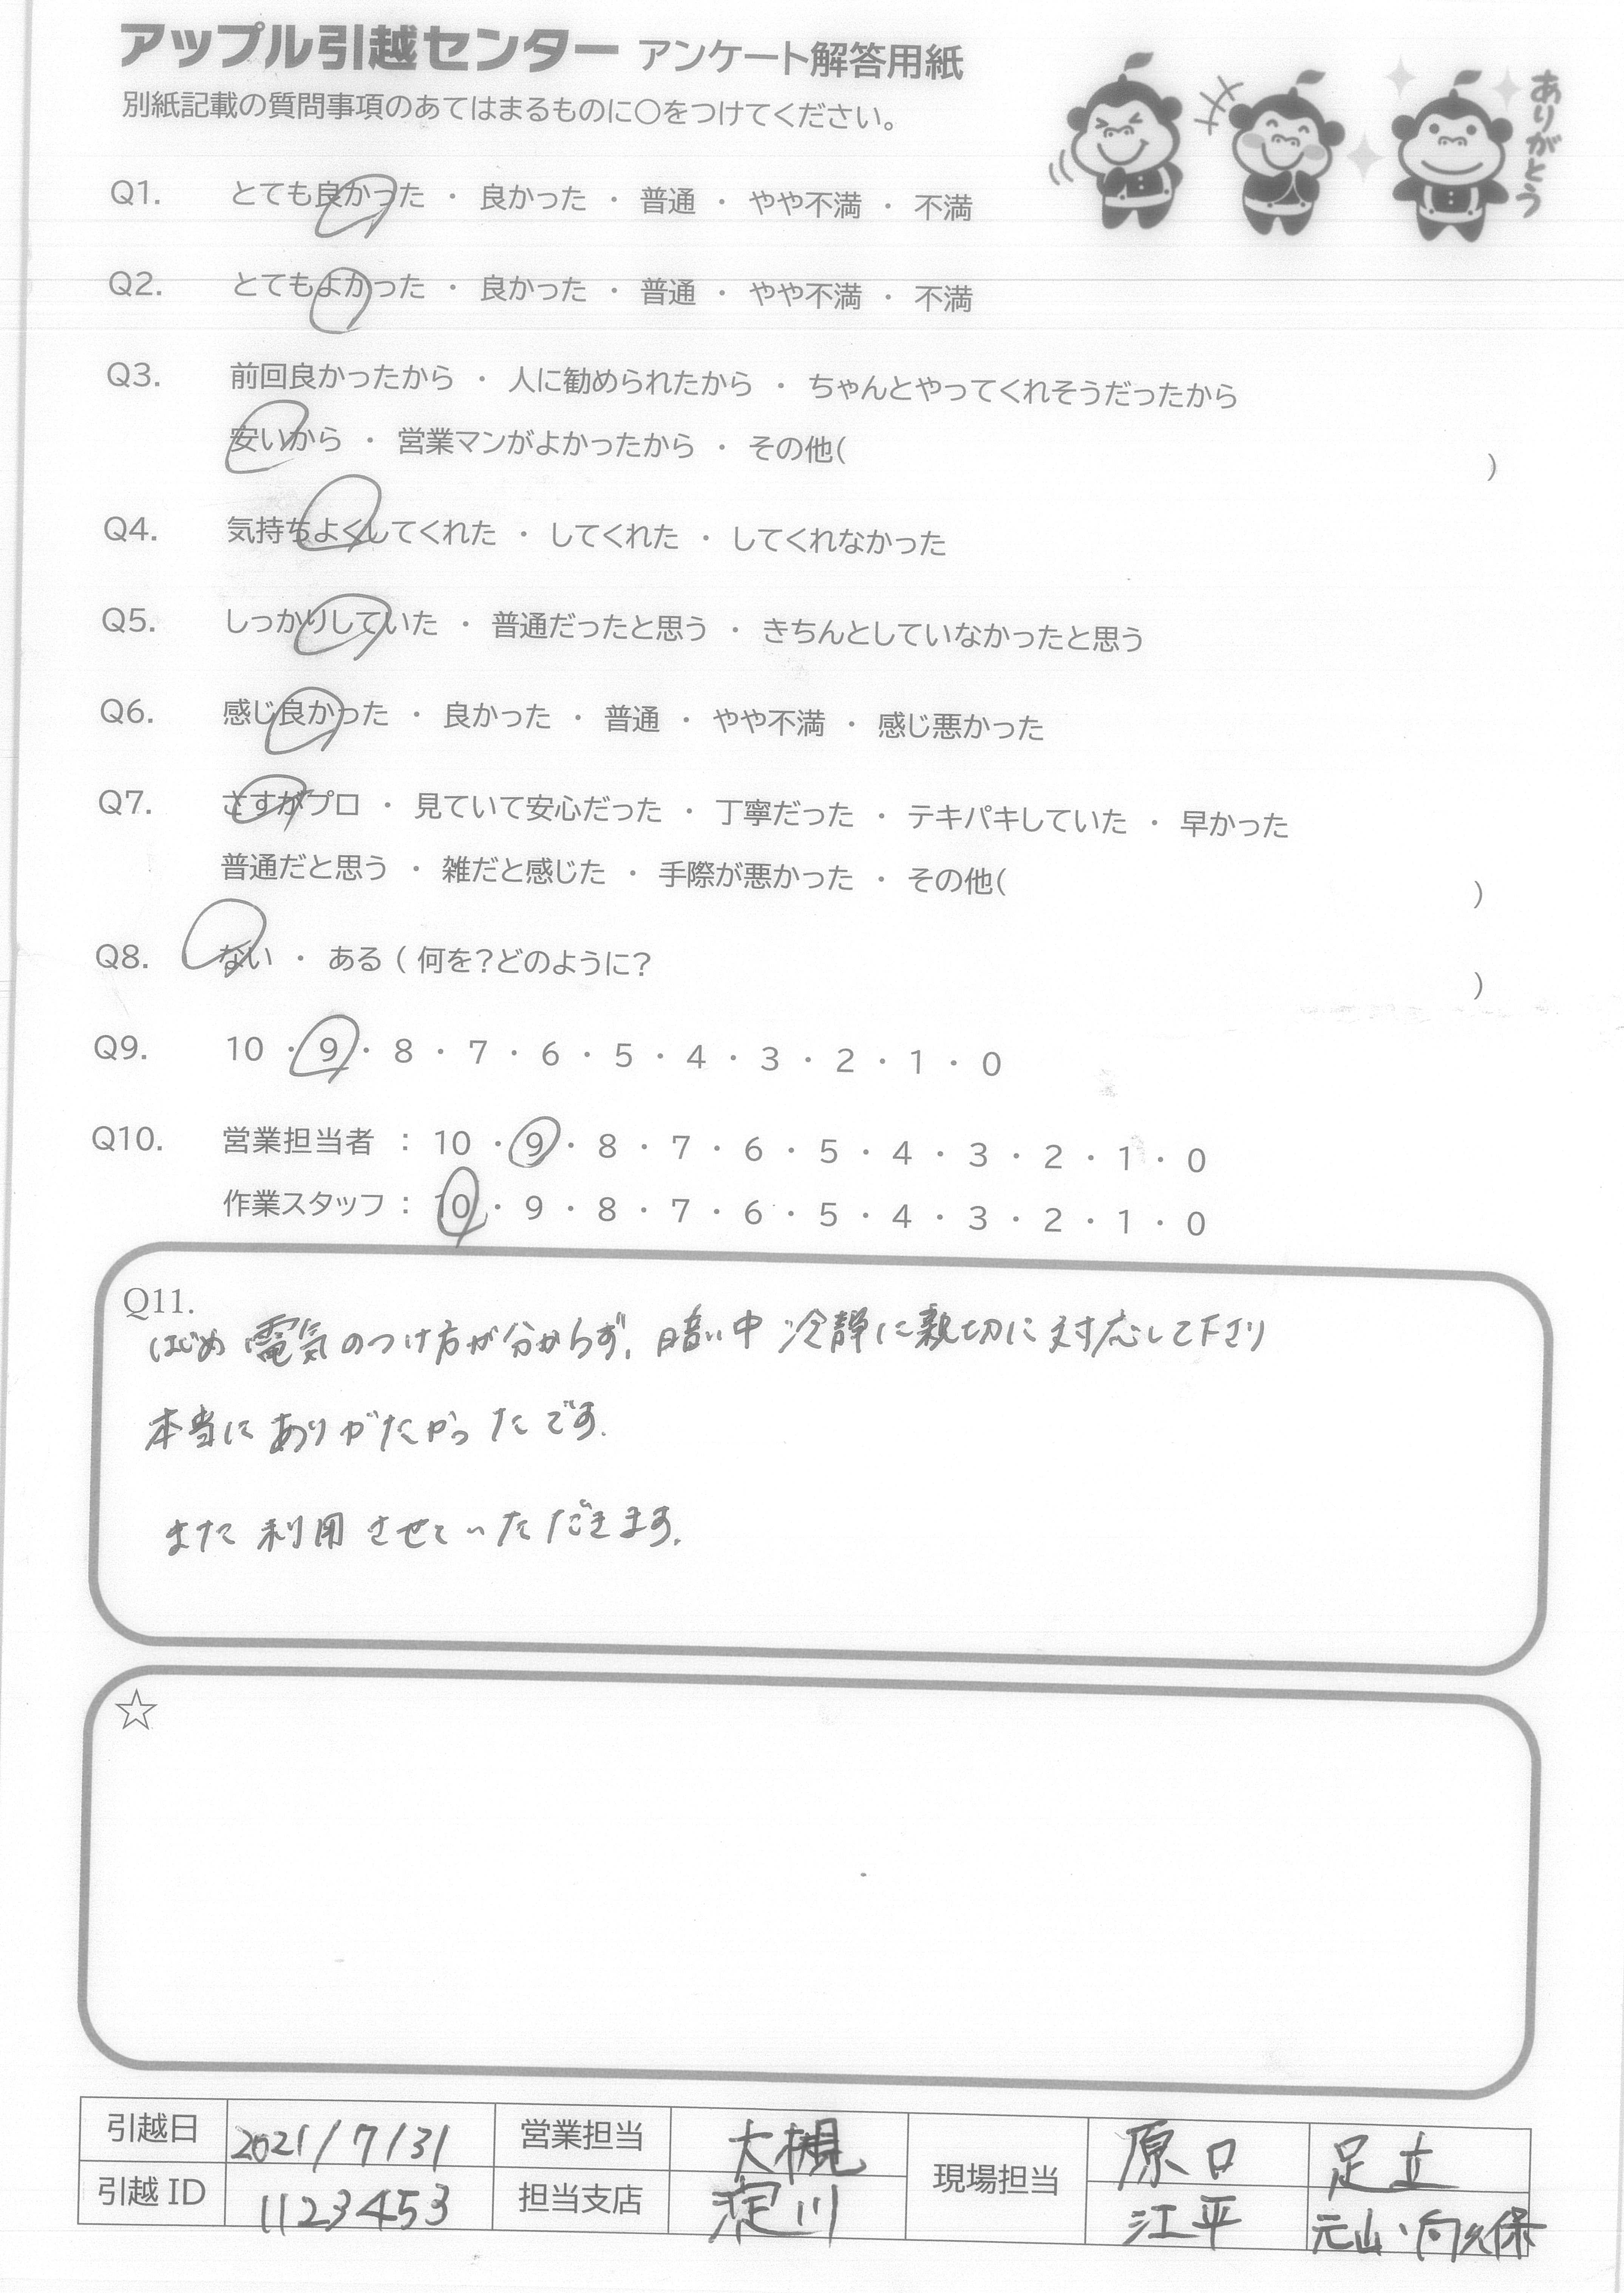 アップル引越センター アンケート解答用紙
別紙記載の質問事項のあてはまるものに○をつけてください。
ありがとう
Q1. とても良かった ・ 良かった ・ 普通 ・ やや不満 ・ 不満
Q2. とてもよかった ・ 良かった ・ 普通 ・ やや不満 ・ 不満
Q3. 前回良かったから ・ 人に勧められたから ・ ちゃんとやってくれそうだったから
安いから ・ 営業マンがよかったから ・ その他( )
Q4. 気持ちよくしてくれた ・ してくれた ・ してくれなかった
Q5. しっかりしていた ・ 普通だったと思う ・ きちんとしていなかったと思う
Q6. 感じ良かった ・ 良かった ・ 普通 ・ やや不満 ・ 感じ悪かった
Q7. さすがプロ ・ 見ていて安心だった ・ 丁寧だった ・ テキパキしていた ・ 早かった
普通だと思う ・ 雑だと感じた ・ 手際が悪かった ・ その他( )
Q8. ない ・ ある ( 何を?どのように? )
Q9. 10 ・ 9 ・ 8 ・ 7 ・ 6 ・ 5 ・ 4 ・ 3 ・ 2 ・ 1 ・ 0
Q10. 営業担当者 : 10 ・ 9 ・ 8 ・ 7 ・ 6 ・ 5 ・ 4 ・ 3 ・ 2 ・ 1 ・ 0
作業スタッフ : 10 ・ 9 ・ 8 ・ 7 ・ 6 ・ 5 ・ 4 ・ 3 ・ 2 ・ 1 ・ 0
Q11.
はじめ 電気のつけ方が分からず、暗い中 冷静に親切に対応して下さり
本当に ありがたかったです.
また 利用 させていただきます.
☆
引越日 2021/7/31 営業担当 大槻 現場担当 原口 足立
引越 ID 1123453 担当支店 淀川 江平 元山・向久保